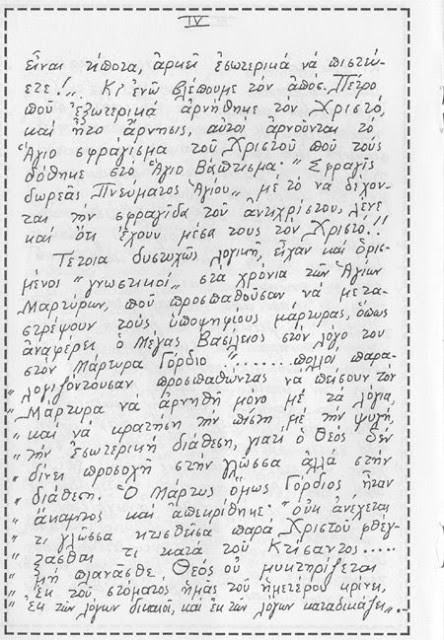 IV
εἶναι τίποτα, ἀρκεῖ ἐσωτερικά νά πιστεύ-
ετε!" Κι ἐνῶ βλέπουμε τόν ἀπόσ. Πέτρο
πού ἐξωτερικά ἀρνήθηκε τόν Χριστό,
καί ἦτο ἄρνησις, αὐτοί ἀρνοῦνται τό
Ἅγιο σφράγισμα τοῦ Χριστοῦ πού τούς
δόθηκε στό Ἅγιο Βάπτισμα· "Σφραγίς
δωρεᾶς Πνεύματος Ἁγίου" μέ τό νά δέχον-
ται τήν σφραγίδα τοῦ ἀντιχρίστου, λένε
καί ὅτι ἔχουν μέσα τους τόν Χριστό!!
Τέτοια δυστυχῶς λογική, εἶχαν καί ὁρισ-
μένοι "γνωστικοί" στά χρόνια τῶν Ἁγίων
Μαρτύρων, πού προσπαθοῦσαν νά μετα-
στρέψουν τούς ὑποψηφίους μάρτυρας, ὅπως
ἀναφέρει ὁ Μέγας Βασίλειος στόν λόγο του
στόν Μάρτυρα Γόρδιο "........πολλοί παρα-
" λογιζόντουσαν προσπαθῶντας νά πείσουν τον
" Μάρτυρα νά ἀρνηθῆ μόνο μέ τά λόγια,
" καί νά κρατήση τήν πίστη μέ τήν ψυχή,
" τήν ἐσωτερική διάθεση, γιατί ὁ Θεός δέν
" δίνει προσοχή στήν γλῶσσα ἀλλά στήν
" διάθεση. Ὁ Μάρτυς ὅμως Γόρδιος ἦταν
" ἄκαμπτος καί ἀπεκρίθηκε· "οὐκ ἀνέχεται
" τι γλῶσσα κτισθεῖσα παρά Χριστοῦ φθέγ-
" ξασθαι τι κατά τοῦ Κτίσαντος.....
" μή πλανᾶσθε, Θεός οὐ μυκτηρίζεται
" ἐκ τοῦ στόματος ἡμᾶς τοῦ ἡμετέρου κρίνει,
" ἐκ τῶν λόγων δικαιοῖ, καί ἐκ τῶν λόγων καταδικάζει"..